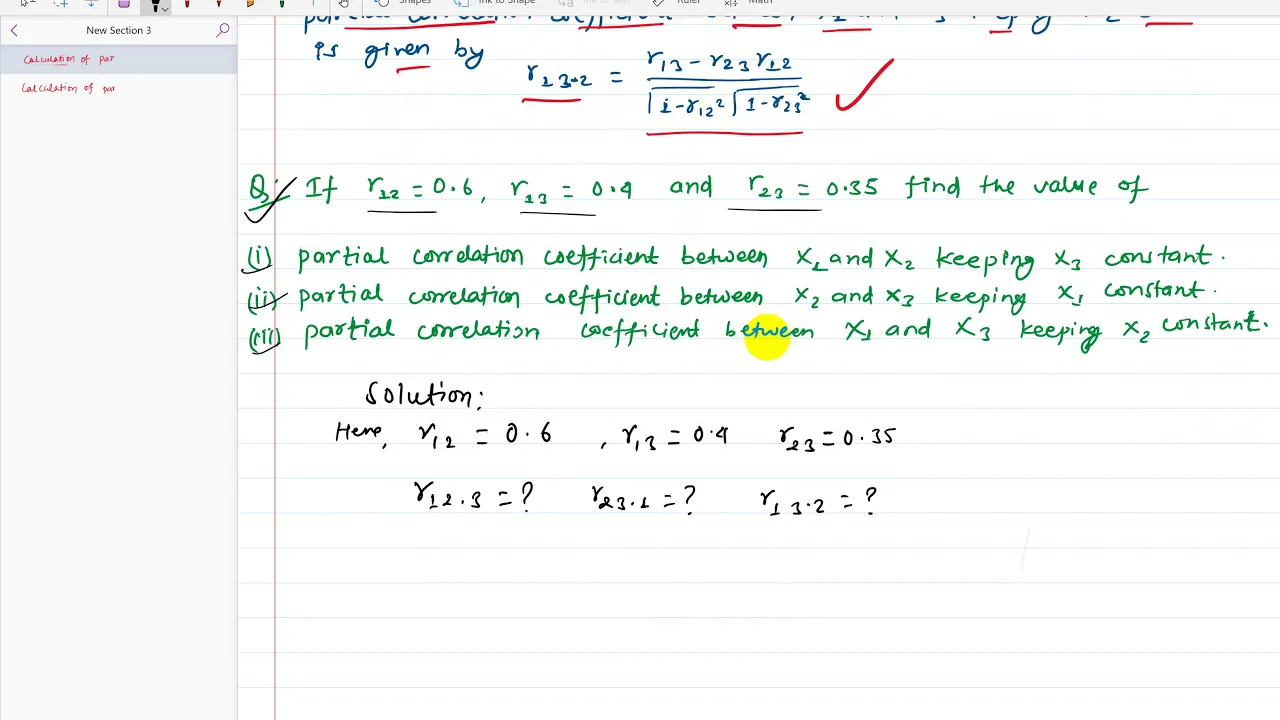 Shapes Ink to Shape Ink to Text Ruler Math
New Section 3
Calculation of par
Calculation of par
partial correlation coefficient
is given by
r₁₃.₂ = r₁₃ - r₂₃ r₁₂ / √1-r₁₂² √1-r₂₃²
Q: If r₁₂ = 0.6, r₁₃ = 0.4 and r₂₃ = 0.35 find the value of
(i) partial correlation coefficient between X₁ and X₂ keeping X₃ constant.
(ii) partial correlation coefficient between X₂ and X₃ keeping X₁ constant.
(iii) partial correlation coefficient between X₁ and X₃ keeping X₂ constant.
Solution:
Here, r₁₂ = 0.6 , r₁₃ = 0.4 r₂₃ = 0.35
r₁₂.₃ = ? r₂₃.₁ = ? r₁₃.₂ = ?